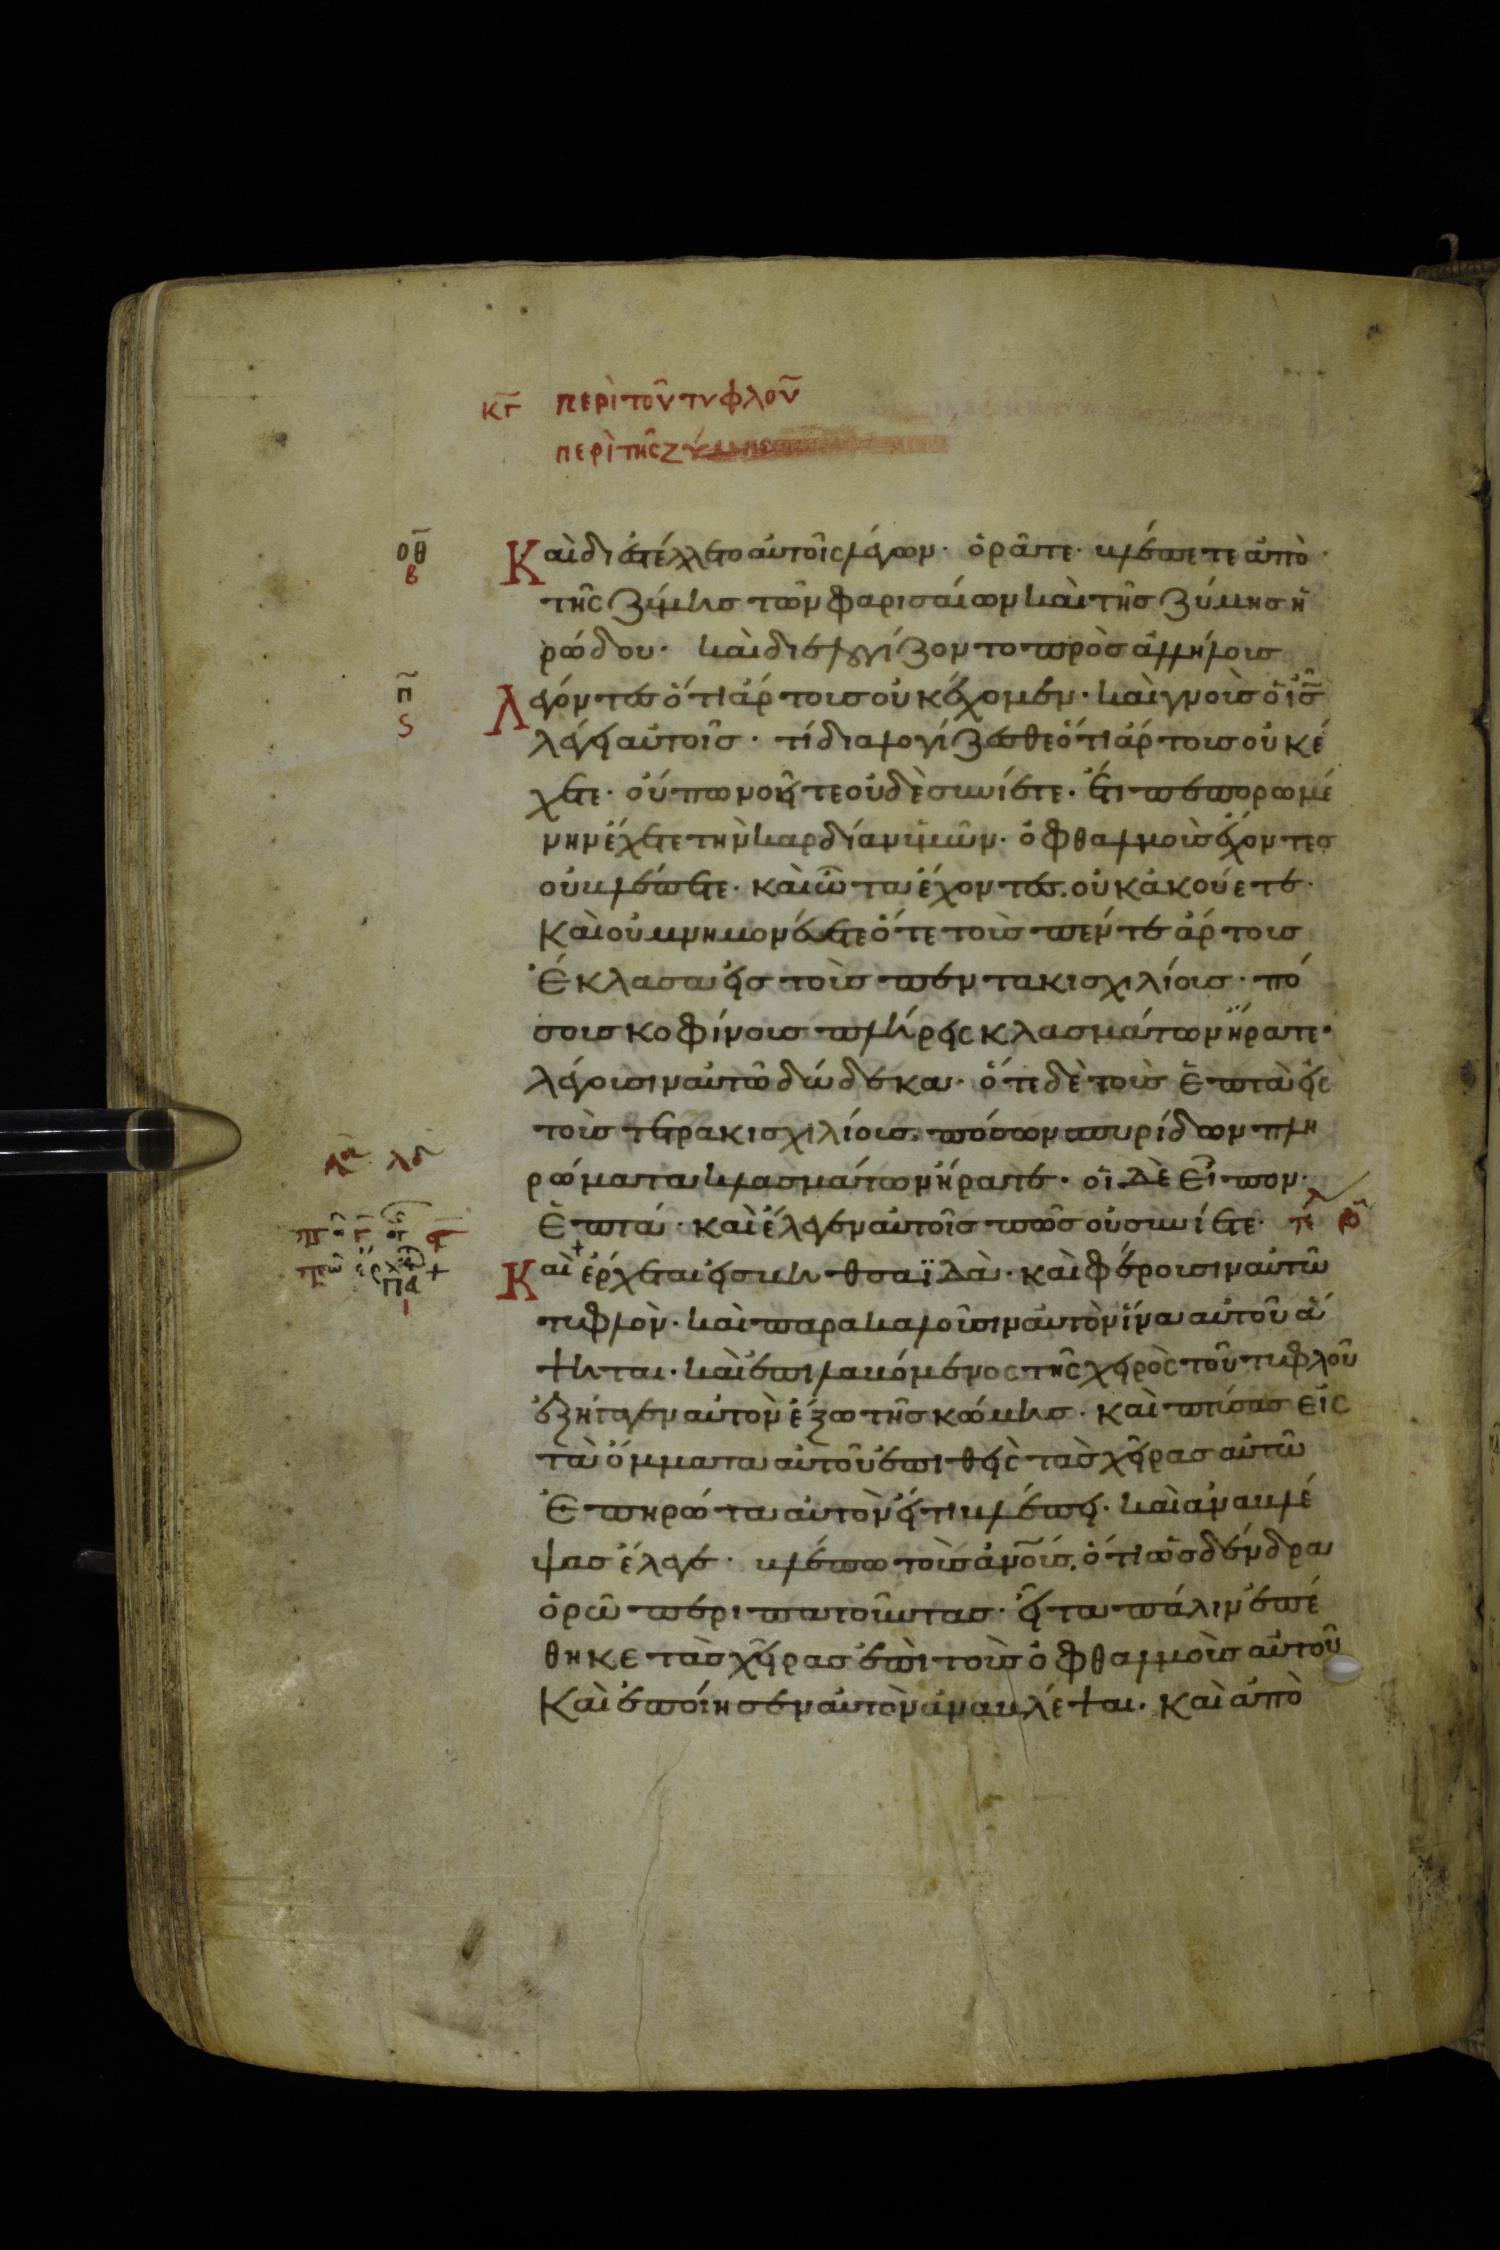 κγ περὶ τοῦ τυφλοῦ
περὶ τῆς ζύμης
οθ
β
Καὶ διεστέλλετο αὐτοῖς λέγων· ὁρᾶτε· βλέπετε ἀπὸ
τῆς ζύμης τῶν φαρισαίων καὶ τῆς ζύμης ἡ
ρώδου· καὶ διελογίζοντο πρὸς ἀλλήλους
π
ϛ
Λέγοντες ὅτι ἄρτους οὐκ ἔχομεν· καὶ γνοὺς ὁ ις
λέγει αὐτοῖς· τί διαλογίζεσθε ὅτι ἄρτους οὐκ ἔ
χετε· οὔπω νοεῖτε οὐδὲ συνίετε· ἔτι πεπορωμέ
νην ἔχετε τὴν καρδίαν ὑμῶν· ὀφθαλμοὺς ἔχοντες
οὐ βλέπετε· καὶ ὦτα ἔχοντες οὐκ ἀκούετε·
Καὶ οὐ μνημονεύετε ὅτε τοὺς πέντε ἄρτους
Ἔκλασα εἰς τοὺς πεντακισχιλίους· πό
σους κοφίνους πλήρεις κλασμάτων ἤρατε·
λέγουσιν αὐτῶ δώδεκα· ὅτε δὲ τοὺς ἑπτὰ εἰς
τοὺς τετρακισχιλίους· πόσων σπυρίδων πλη
ρώματα κλασμάτων ἤρατε· οἱ δὲ εἶπον·
Ἑπτά· καὶ ἔλεγεν αὐτοῖς πῶς οὐ συνίετε·
πα
ι
Καὶ ἔρχεται εἰς βηθσαϊδὰ· καὶ φέρουσιν αὐτῶ
τυφλὸν· καὶ παρακαλοῦσιν αὐτὸν ἵνα αὐτοῦ ἅ
ψηται· καὶ ἐπιλαβόμενος τῆς χειρὸς τοῦ τυφλοῦ
ἐξήγαγεν αὐτὸν ἔξω τῆς κώμης· καὶ πτύσας εἰς
τὰ ὄμματα αὐτοῦ ἐπιθεὶς τὰς χεῖρας αὐτῶ
Ἐπηρώτα αὐτὸν εἴ τι βλέπει· καὶ ἀναβλέ
ψας ἔλεγε· βλέπω τοὺς ἀνους, ὅτι ὡς δένδρα
ὁρῶ περιπατοῦντας· εἶτα πάλιν ἐπέ
θηκε τὰς χεῖρας ἐπὶ τοὺς ὀφθαλμοὺς αὐτοῦ
Καὶ ἐποίησεν αὐτὸν ἀναβλέψαι· καὶ ἀπὸ